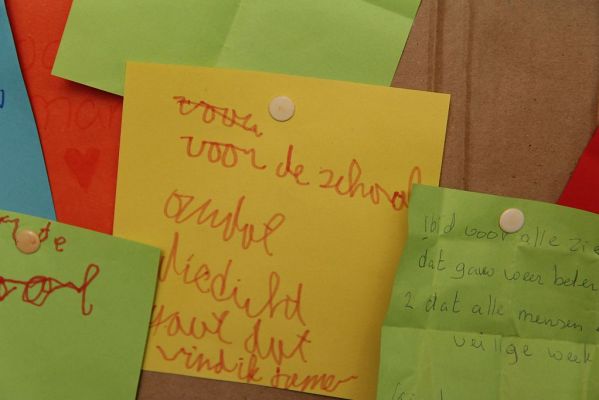 voor
voor de school
omdat
diedicht
gaat dat
vind ik jamer
de
ool
ibid voor alle zie
dat gauw weer beter
2 dat alle mensen
veilige week